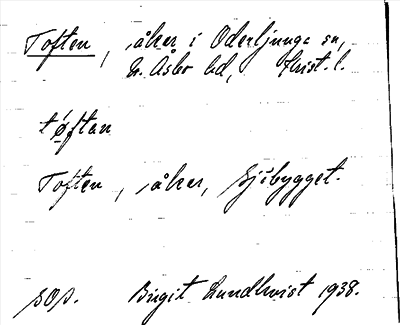 Toften, åker i Oderljunga sn,
N. Åsbo hd, Krist. l.
tøftan
Toften, åker, Sjöbygget.
SOS. Birgit Lundkvist 1938.